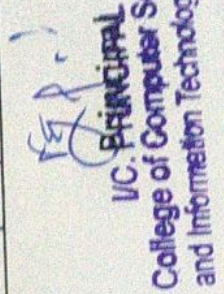 I/C. PRINCIPAL
College of Computer S
and Information Technolog